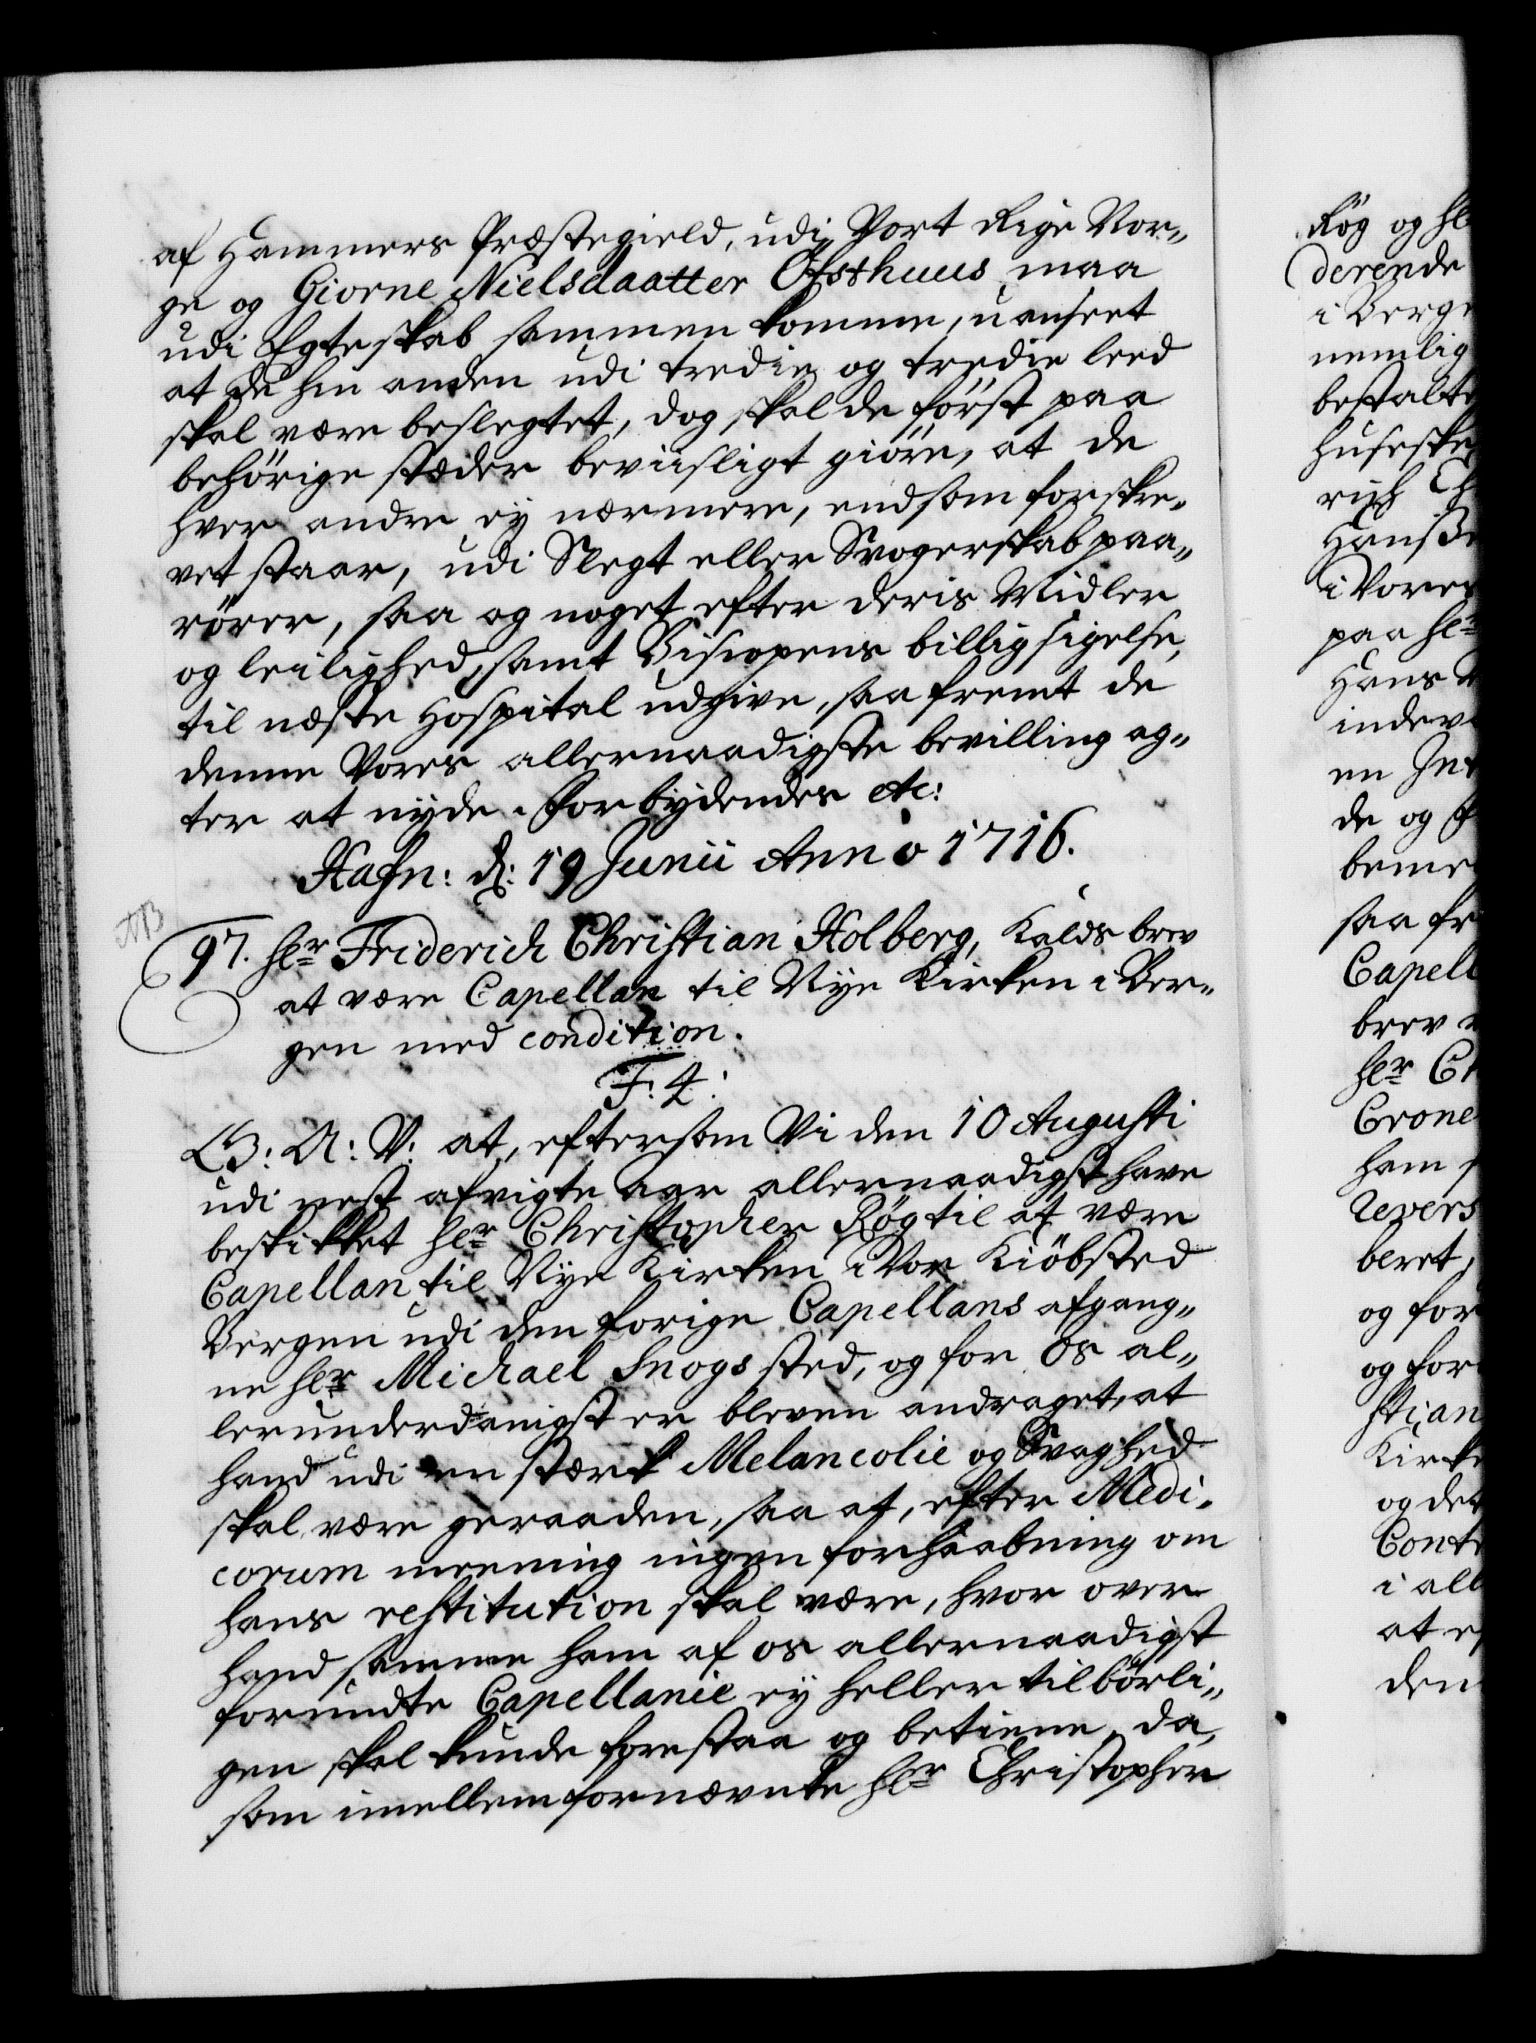 af Hammers Præstegield, udi Vort Rige Nor-
ge og Giorne Nielsdaatter Ofsthuus maa
udi Egteskab sammen komme, uanseet
at de hin anden udi tredie og tredie leed
skal være beslegtet, dog skal de først paa
behörige stæder beviisligt giöre, at de
hver andre ey nærmere, end som forskre-
vet staar, udi Slegt eller Svogerskab paa-
rörer, saa og noget efter deris Midler
og leilighed, samt Biscopens billigsigelse,
til næste Hospital udgive, saa fremt de
denne Vores allernaadigste bevilling ag-
ter at nyde. Forbydendes etc:
Hafn: d: 19 Junii Anno 1716.
NB
97. Hr Friderich Christian Holberg, Kalds brev
at være Capellan til Nye Kirken i Ber-
gen med condition.
F: 4:
G: A: V: at, eftersom Vi den 10 Augusti
udi nest afvigte Aar allernaadigst have
beskikket Hr Christopher Røg til at være
Capellan til Nye Kirken i Vor Kiöbsted
Bergen udi den forige Capellans afgang-
ne Hr Michael Snogs sted, og for Os al-
lerunderdanigst er bleven andraget, at
hand udi en stærk Melancolie og Svaghed
skal være geraaden, saa at, efter Medi-
corum meening ingen forhaabning om
hans restitution skal være, hvor over
hand samme ham af os allernaadigst
forundte Capellanie ey heller tilbörli-
gen skal kunde forestaa og betiene, da,
som imellem fornævnte Hr Christopher
Røg og Hr
derende
i Berge
nemlig
bestalte
rich Ch
Hanße
i Vores
paa Hr
Hans
indev
en
de og
beme
saa fr
Capell
brev
Hr Ch
Crone
ham
revers
beret,
og for
og for
stian
Kirke
og det
Cont
i all
at
den